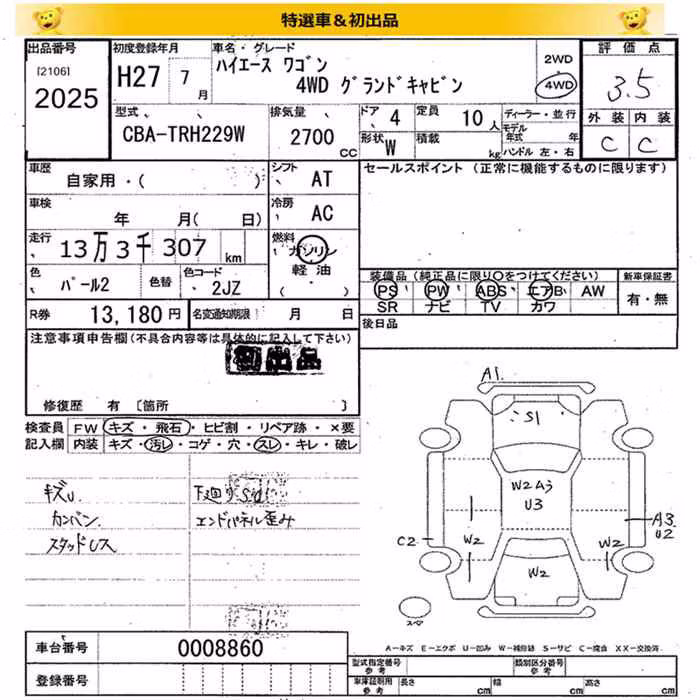 特選車＆初出品
出品番号
[2106]
2025
初度登録年月
H27 7月
車名・グレード
ハイエース ワゴン
4WD グランドキャビン
2WD
4WD
評価点
3.5
外装 内装
C C
型式
CBA-TRH229W
排気量
2700 CC
ドア 4
定員 10人
形状 W
積載 kg
ディーラー・並行
モデル年式 年
ハンドル 左・右
車歴
自家用・( )
シフト AT
車検
年 月( 日)
冷房 AC
走行
13万3千307 km
燃料
ガソリン
軽油
( )
色
パール2
色替
色コード
2JZ
R券 13,180円
名変通知期限 月 日
セールスポイント (正常に機能するものに限ります)
装備品 (純正品に限り〇をつけてください)
新車保証書
PS PW ABS エアB AW
有・無
SR ナビ TV カワ
後日品
注意事項申告欄(不具合内容等は具体的に記入して下さい)
初出品
修復歴 有 〔箇所 〕
検査員記入欄
FW キズ・飛石・ヒビ割・リペア跡・×要
内装 キズ・汚レ・コゲ・穴・スレ・キレ・破レ
キズU
カンバン
スタッドレス
下廻りSU
エンドパネル歪み
A1
S1
W2 A3
U3
A3
U2
C2
W2
W2
W2
スペア
A－キズ E－エクボ U－凹み W－補修跡 S－サビ C－腐食 XX－交換済
車台番号 0008860
登録番号
型式指定番号 参考
類別区分番号 参考
車庫証明用 参考
長さ cm 幅 cm 高さ cm